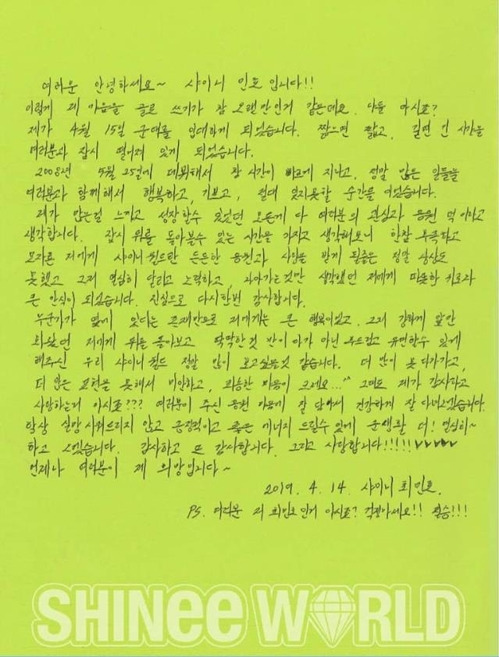 여러분 안녕하세요~ 샤이니 민호입니다!!
이렇게 제 마음을 글로 쓰기가 참 오랜만인거 같은데요. 다들 아시죠?
제가 4월 15일 군대를 입대하게 되었습니다. 짧으면 짧고, 길면 긴 시간을
여러분과 잠시 떨어져 있게 되었습니다.
2008년 5월 25일에 데뷔해서 참 시간이 빠르게 지나고, 정말 많은 일들을
여러분과 함께해서 행복하고, 기쁘고, 절대 잊지못할 순간들 이었습니다.
제가 많은걸 느끼고 성장할수 있었던 모든게 다 여러분의 관심과 응원 덕이라고
생각합니다. 잠시 뒤를 돌아볼수 있는 시간을 가지고 생각해보니 한참 부족하고
모자른 저에게 샤이니월드란 든든한 응원과 사랑을 받게 될줄은 정말 상상도
못했고 그저 열심히 달리고 노력하고, 나아가는것만 생각했던 저에게 따뜻한 위로와
큰 안식이 되었습니다. 진심으로 다시한번 감사합니다.
누군가가 옆에 있다는 존재만으로 저에게는 큰 행복이었고, 그저 강하게 앞만
봐왔던 저에게 뒤를 돌아보고 딱딱한것 만이 아닌 부드럽고 유연할수 있게
해주신 우리 샤이니월드 정말 많이 보고싶을것 같습니다. 더 많이 못 다가가고,
더 많은 표현을 못해서 미안하고, 죄송한 마음이 크네요....^^ 그래도 제가 감사하고
사랑하는거 아시죠??? 여러분이 주신 응원 마음에 잘 담아서 건강하게 잘 다녀오겠습니다.
항상 실망시켜드리지 않고 긍정적이고 좋은 에너지 드릴수 있게 군생활 더! 열심히~
하고 오겠습니다. 감사하고 또 감사합니다. 그리고 사랑합니다!!!!!♥♥♥♥
언제나 여러분이 제 희망입니다~
2019. 4. 14. 샤이니 최민호.
PS. 여러분 저 최민호인거 아시죠? 걱정마세요!! 필승!!!
SHINee WORLD